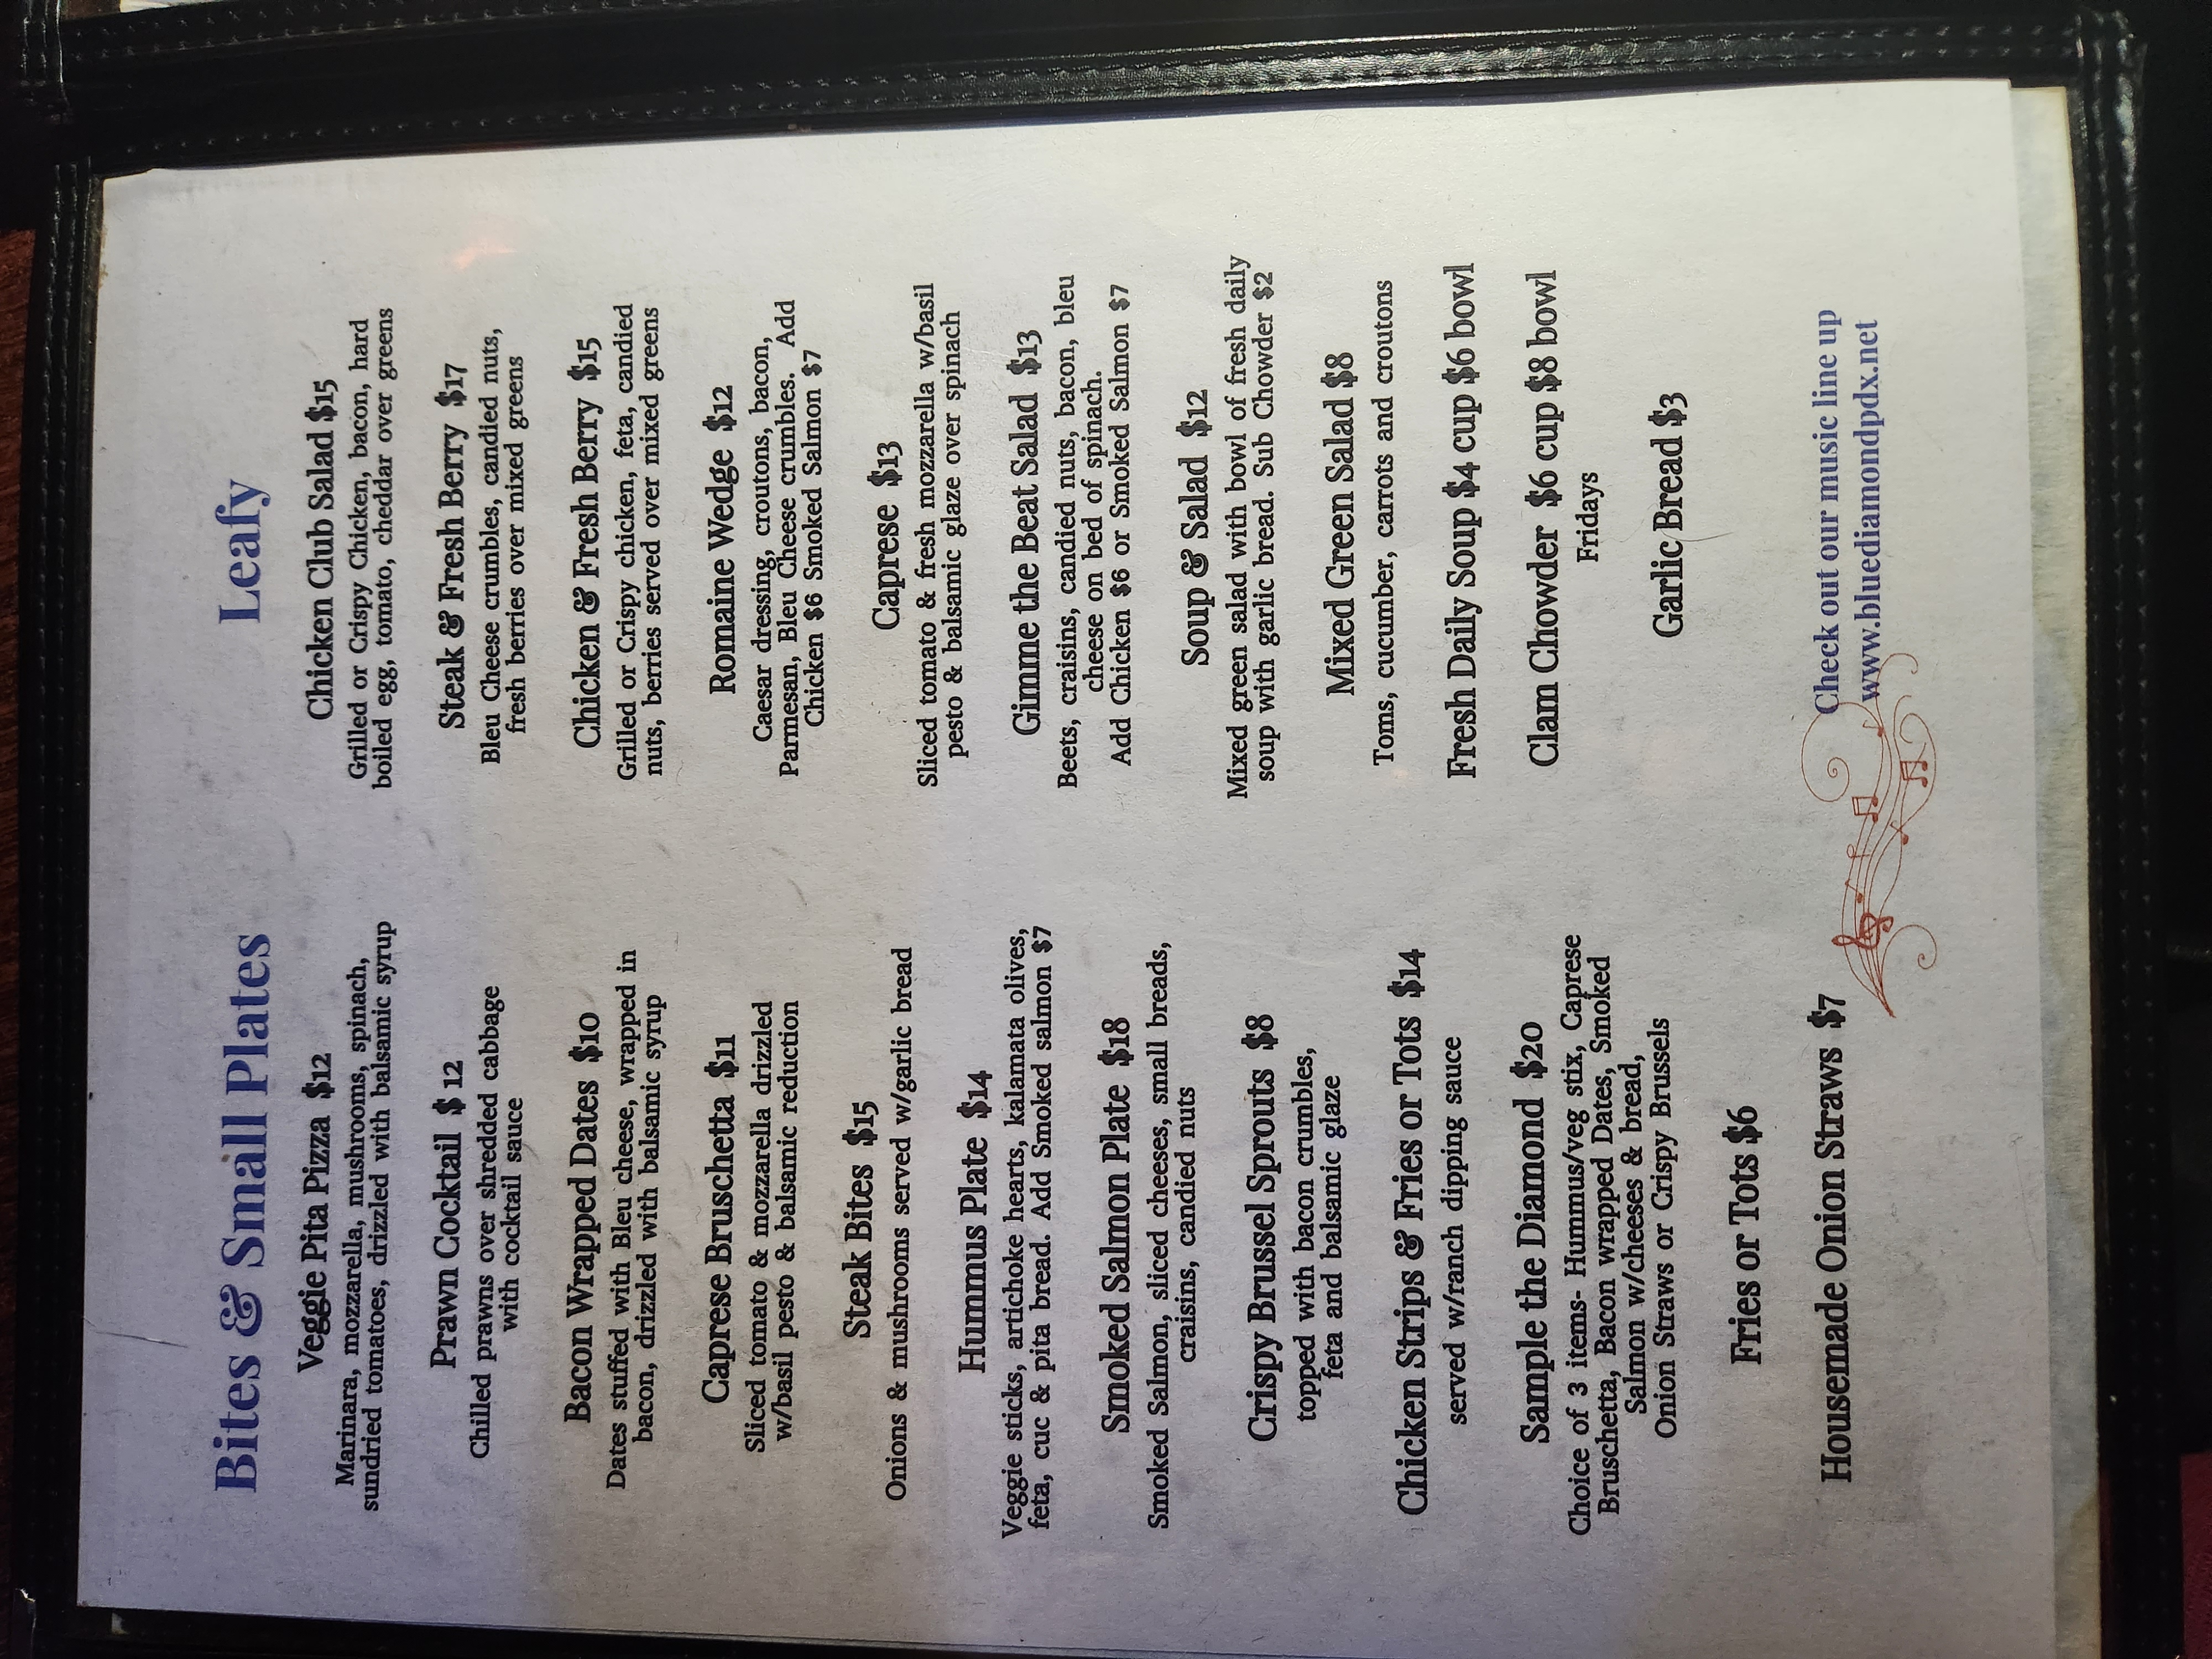 Bites & Small Plates
Veggie Pita Pizza $12
Marinara, mozzarella, mushrooms, spinach,
sundried tomatoes, drizzled with balsamic syrup
Prawn Cocktail $ 12
Chilled prawns over shredded cabbage
with cocktail sauce
Bacon Wrapped Dates $10
Dates stuffed with Bleu cheese, wrapped in
bacon, drizzled with balsamic syrup
Caprese Bruschetta $11
Sliced tomato & mozzarella drizzled
w/basil pesto & balsamic reduction
Steak Bites $15
Onions & mushrooms served w/garlic bread
Hummus Plate $14
Veggie sticks, artichoke hearts, kalamata olives,
feta, cuc & pita bread. Add Smoked salmon $7
Smoked Salmon Plate $18
Smoked Salmon, sliced cheeses, small breads,
craisins, candied nuts
Crispy Brussel Sprouts $8
topped with bacon crumbles,
feta and balsamic glaze
Chicken Strips & Fries or Tots $14
served w/ranch dipping sauce
Sample the Diamond $20
Choice of 3 items- Hummus/veg stix, Caprese
Bruschetta, Bacon wrapped Dates, Smoked
Salmon w/cheeses & bread,
Onion Straws or Crispy Brussels
Fries or Tots $6
Housemade Onion Straws $7
Leafy
Chicken Club Salad $15
Grilled or Crispy Chicken, bacon, hard
boiled egg, tomato, cheddar over greens
Steak & Fresh Berry $17
Bleu Cheese crumbles, candied nuts,
fresh berries over mixed greens
Chicken & Fresh Berry $15
Grilled or Crispy chicken, feta, candied
nuts, berries served over mixed greens
Romaine Wedge $12
Caesar dressing, croutons, bacon,
Parmesan, Bleu Cheese crumbles. Add
Chicken $6 Smoked Salmon $7
Caprese $13
Sliced tomato & fresh mozzarella w/basil
pesto & balsamic glaze over spinach
Gimme the Beat Salad $13
Beets, craisins, candied nuts, bacon, bleu
cheese on bed of spinach.
Add Chicken $6 or Smoked Salmon $7
Soup & Salad $12
Mixed green salad with bowl of fresh daily
soup with garlic bread. Sub Chowder $2
Mixed Green Salad $8
Toms, cucumber, carrots and croutons
Fresh Daily Soup $4 cup $6 bowl
Clam Chowder $6 cup $8 bowl
Fridays
Garlic Bread $3
Check out our music line up
www.bluediamondpdx.net